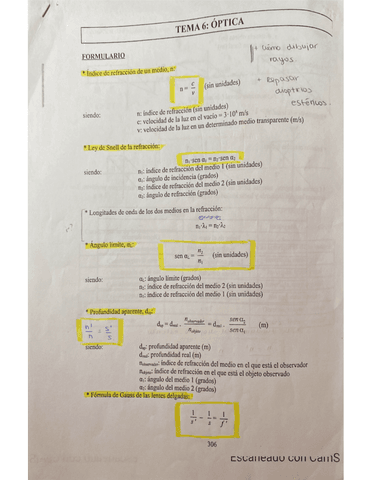 TEMA 6: ÓPTICA
+ cómo dibujar
rayos.
- Repasar
dioptrios
esféricos.
FORMULARIO
* Índice de refracción de un medio, n:
n = c/v (sin unidades)
siendo: n: índice de refracción (sin unidades)
c: velocidad de la luz en el vacío = 3·10⁸ m/s
v: velocidad de la luz en un determinado medio transparente (m/s)
* Ley de Snell de la refracción:
n₁·sen α₁ = n₂·sen α₂
siendo: n₁: índice de refracción del medio 1 (sin unidades)
α₁: ángulo de incidencia (grados)
n₂: índice de refracción del medio 2 (sin unidades)
α₂: ángulo de refracción (grados)
* Longitudes de onda de los dos medios en la refracción:
n₁·λ₁ = n₂·λ₂
* Ángulo límite, αL:
sen αL = n₂/n₁ (sin unidades)
siendo: αL: ángulo límite (grados)
n₂: índice de refracción del medio 2 (sin unidades)
n₁: índice de refracción del medio 1 (sin unidades)
* Profundidad aparente, dap:
dap = dreal · nobservador/nobjeto = dreal · sen α₁/sen α₂ (m)
n'/n = s'/s
siendo: dap: profundidad aparente (m)
dreal: profundidad real (m)
nobservador: índice de refracción del medio en el que está el observador
nobjeto: índice de refracción en el que está el objeto observado
α₁: ángulo del medio 1 (grados)
α₂: ángulo del medio 2 (grados)
* Fórmula de Gauss de las lentes delgadas:
1/s' - 1/s = 1/f'
306
Escaneado con CamS